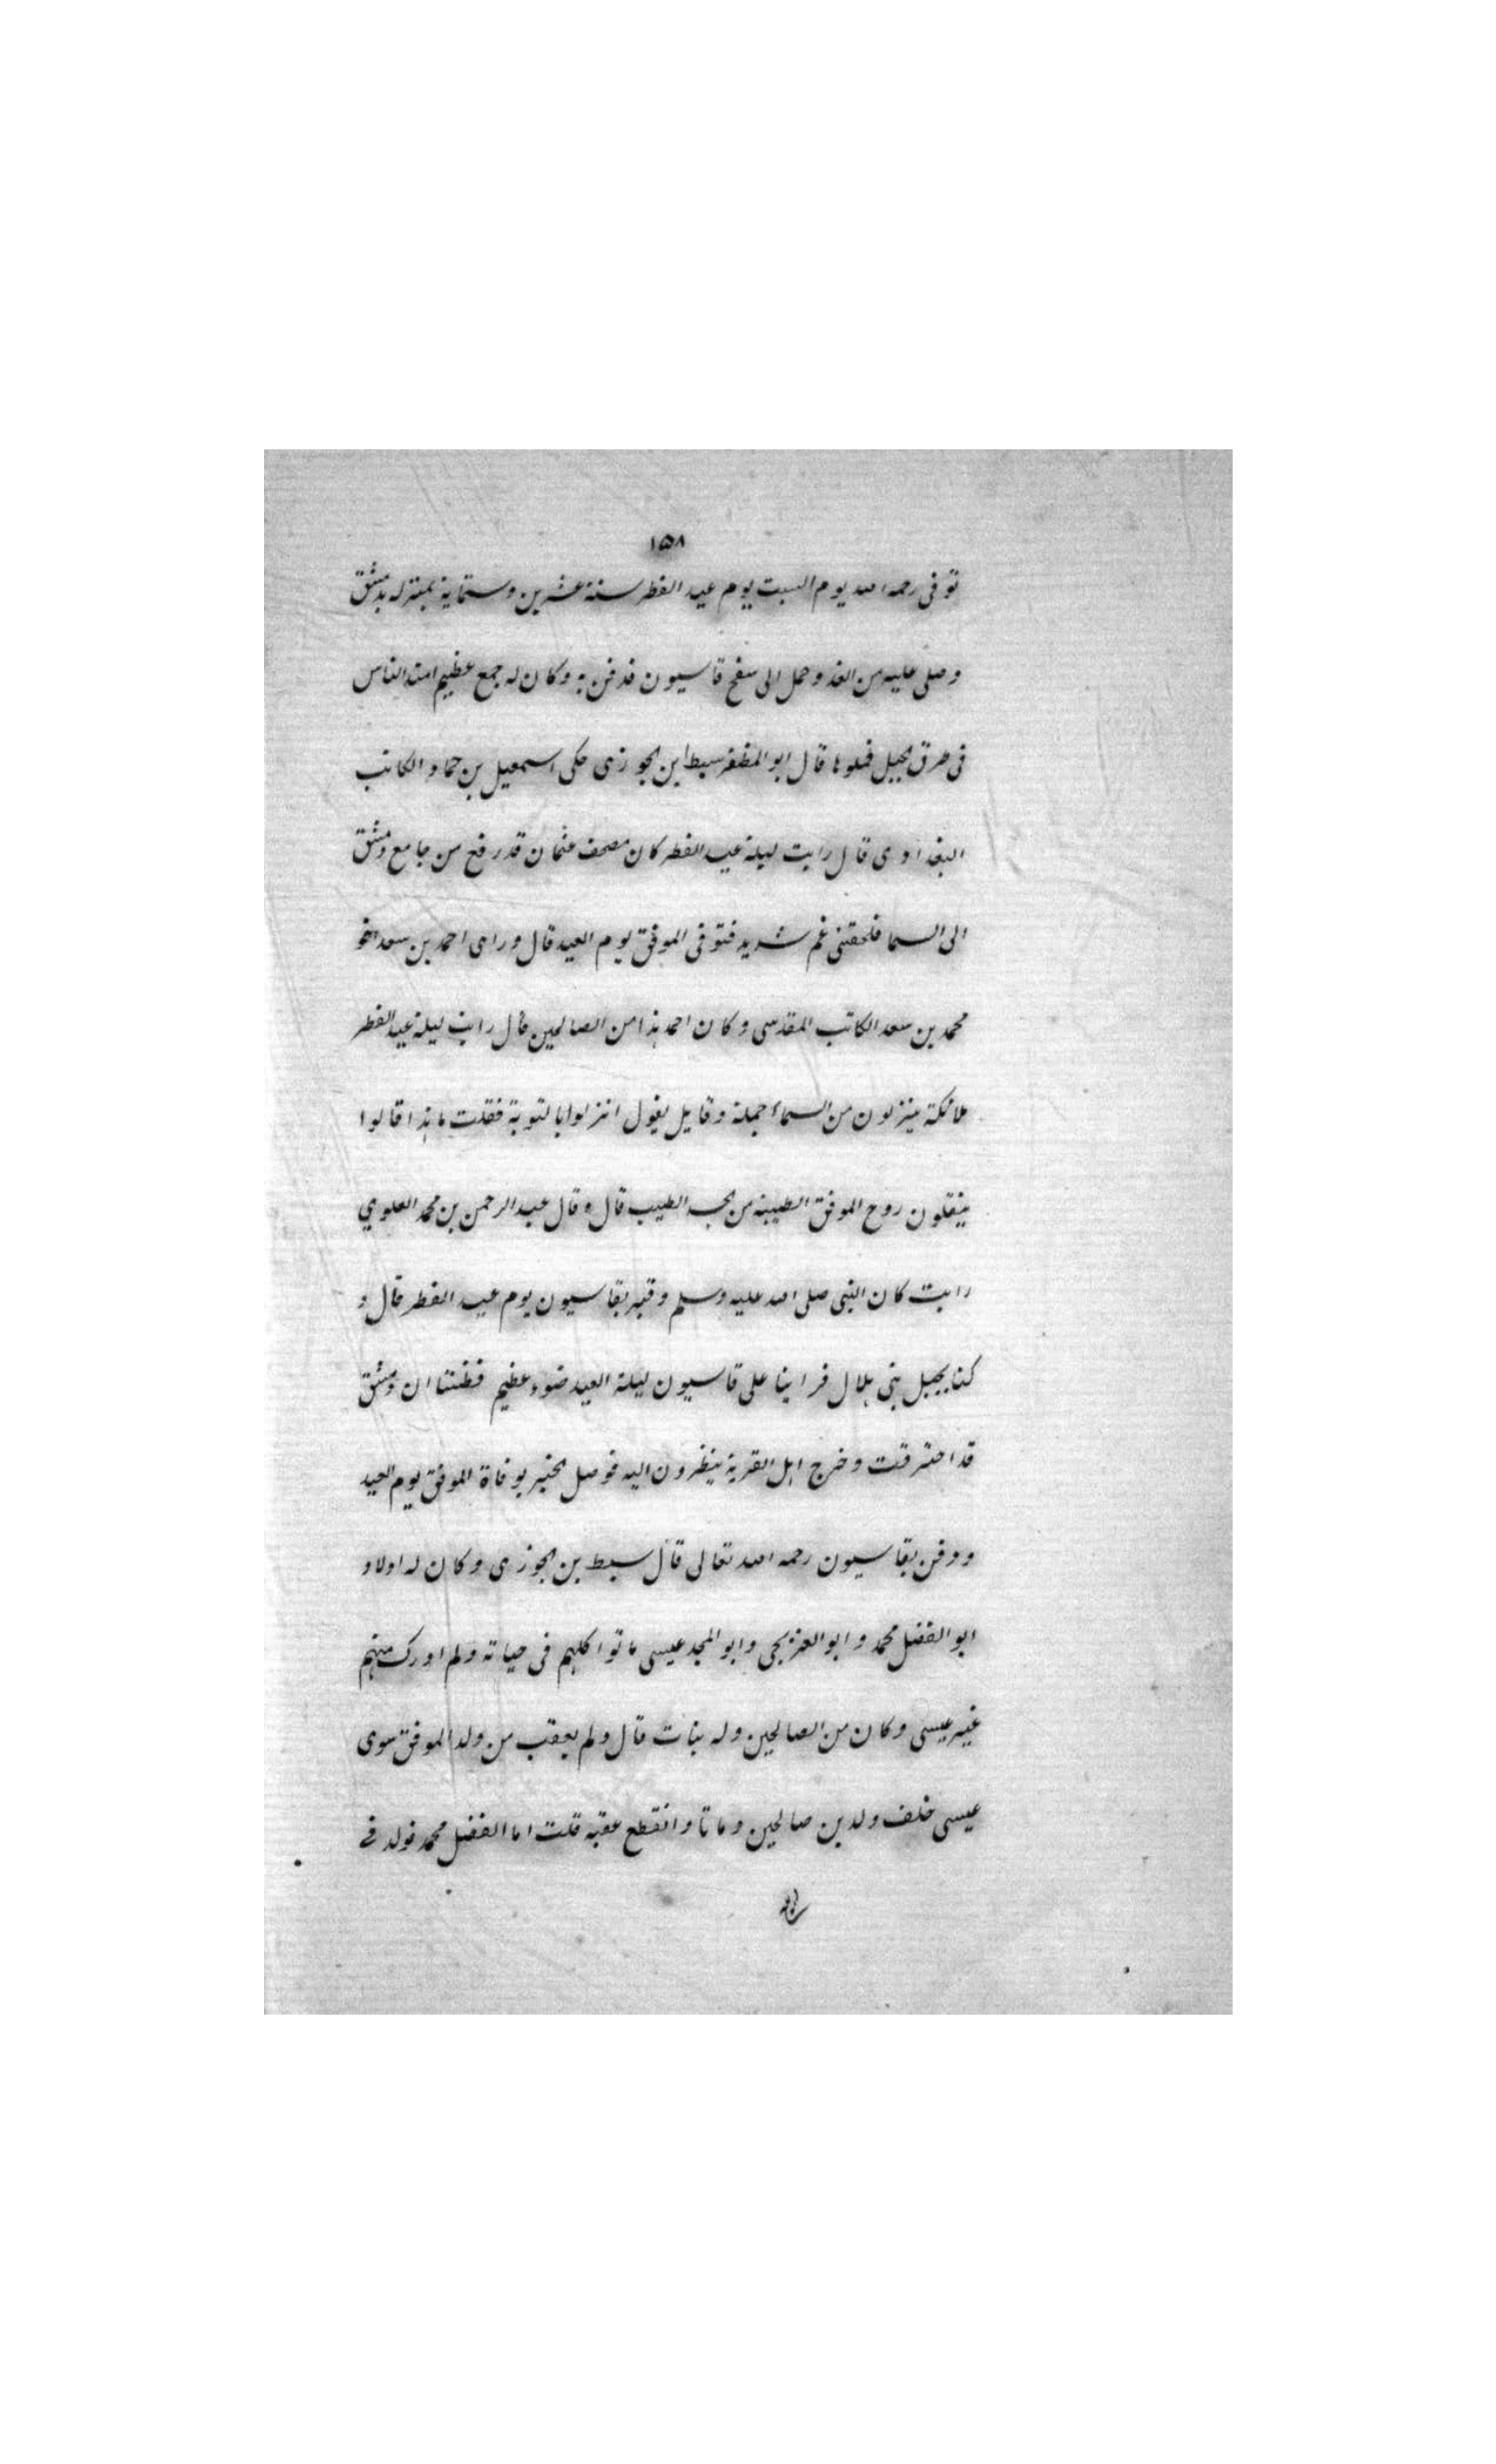 ١٥٨
توفى رحمه الله يوم السبت يوم عيد الفطر سنة عشرين وستماية بمنزله بدمشق
وصلى عليه من الغد وحمل الى سفح قاسيون فدفن به وكان له جمع عظيم امتد الناس
فى طرق الجبل فملوها قال ابو المظفر سبط ابن الجوزى حكى اسمعيل بن حماد الكاتب
البغدادى قال رايت ليلة عيد الفطر كان مصحف عثمان قد رفع من جامع دمشق
الى السما فلحقنى غم شديد فتوفى الموفق يوم العيد قال وراى احمد بن سعد اخو
محمد بن سعد الكاتب المقدسى وكان احمد هذا من الصالحين قال رايت ليلة عيد الفطر
ملائكة ينزلون من السماء جملة وقايل يقول انزلوا بالنوبة فقلت ما هذا قالوا
ينقلون روح الموفق الطيبة من الجسد الطيب قال وقال عبد الرحمن بن محمد العلوي
رايت كان النبى صلى الله عليه وسلم وقبر بقاسيون يوم عيد الفطر قال و
كنا بجبل بنى هلال فراينا على قاسيون ليلة العيد ضوء عظيم فظننا ان دمشق
قد احترقت وخرج اهل القرية ينظرون اليه فوصل الخبر بوفاة الموفق يوم العيد
ودفن بقاسيون رحمه الله تعالى قال سبط بن الجوزى وكان له اولاد
ابو الفضل محمد وابو العز يحيى وابو المجد عيسى ماتوا كلهم فى حياته ولم ادرك منهم
غير عيسى وكان من الصالحين وله بنات قال ولم يعقب من ولد الموفق سوى
عيسى خلف ولدين صالحين وماتا وانقطع عقبه قلت اما الفضل محمد فولد فے